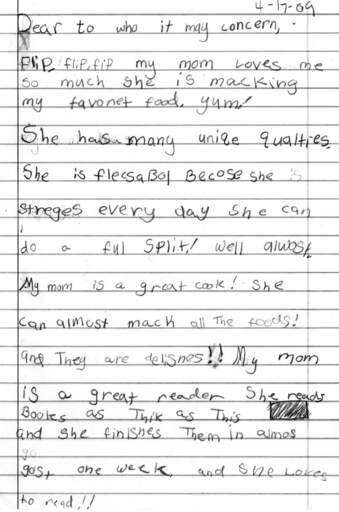 4-17-09
Dear to who it may concern,
flip, flip, flip my mom Loves me
so much she is macking
my favonet food. yum!
She has many uniqe qualties
She is flecsaBol Becose she is
streges every day she can
do a ful split! well alwost
My mom is a great cook! She
can almost mack all The foods!
and They are delisnes!! My mom
is a great reader She reads
Bookes as Thik as This
and she finishes Them in almos
go
gost one week and She Loves
to read!!